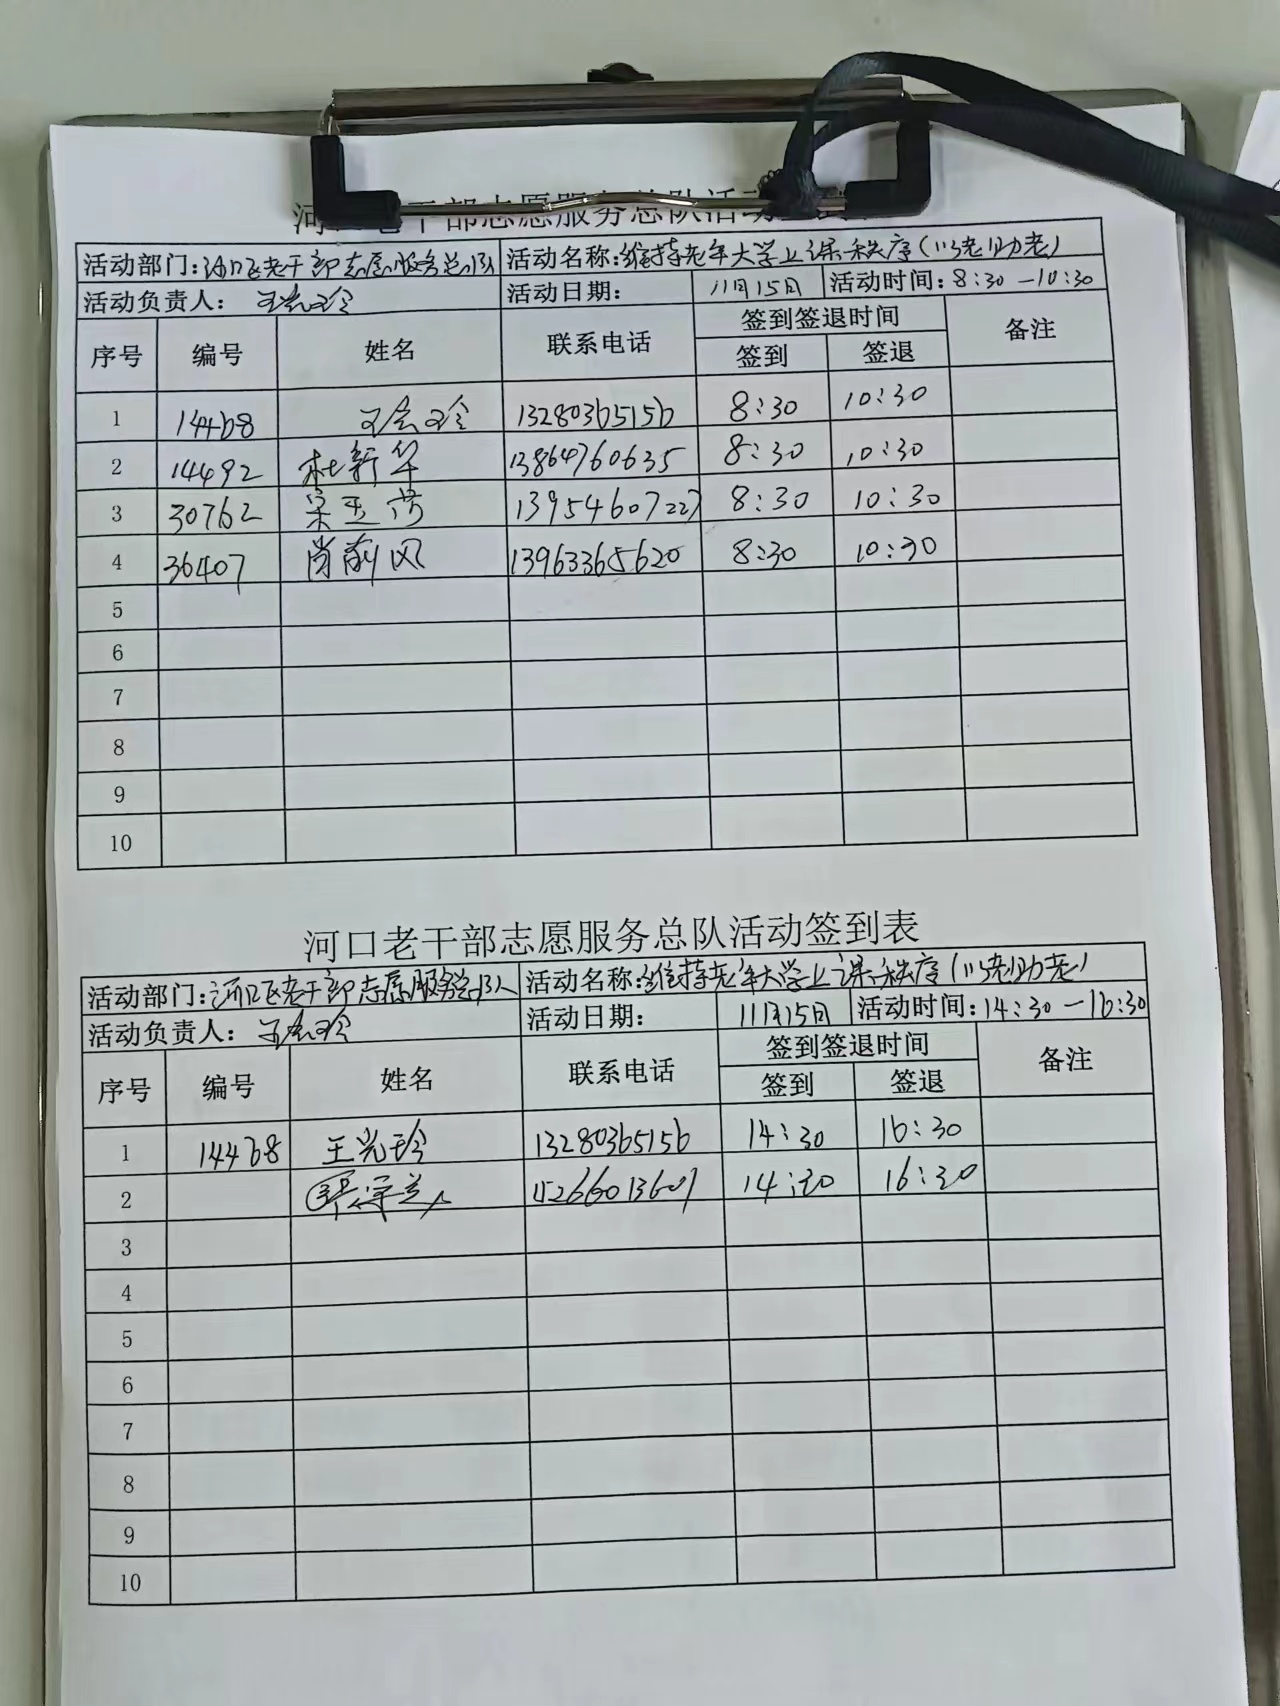 河口老干部志愿服务总队活动
活动部门:河口区老干部志愿服务总队 活动名称:维持老年大学上课秩序(以老助老)
活动负责人: 王光玲 活动日期: 11月15日 活动时间:8:30-10:30
序号 编号 姓名 联系电话 签到签退时间 备注
签到 签退
1 14468 王光玲 13280365156 8:30 10:30
2 14492 杜新华 13864760635 8:30 10:30
3 30762 宋玉 13954607227 8:30 10:30
4 36407 肖前风 13963365620 8:30 10:30
5
6
7
8
9
10
河口老干部志愿服务总队活动签到表
活动部门:河口区老干部志愿服务总队 活动名称:维持老年大学上课秩序(以老助老)
活动负责人: 王光玲 活动日期: 11月15日 活动时间:14:30-16:30
序号 编号 姓名 联系电话 签到签退时间 备注
签到 签退
1 14468 王光玲 13280365156 14:30 16:30
2 14:30 16:30
3
4
5
6
7
8
9
10